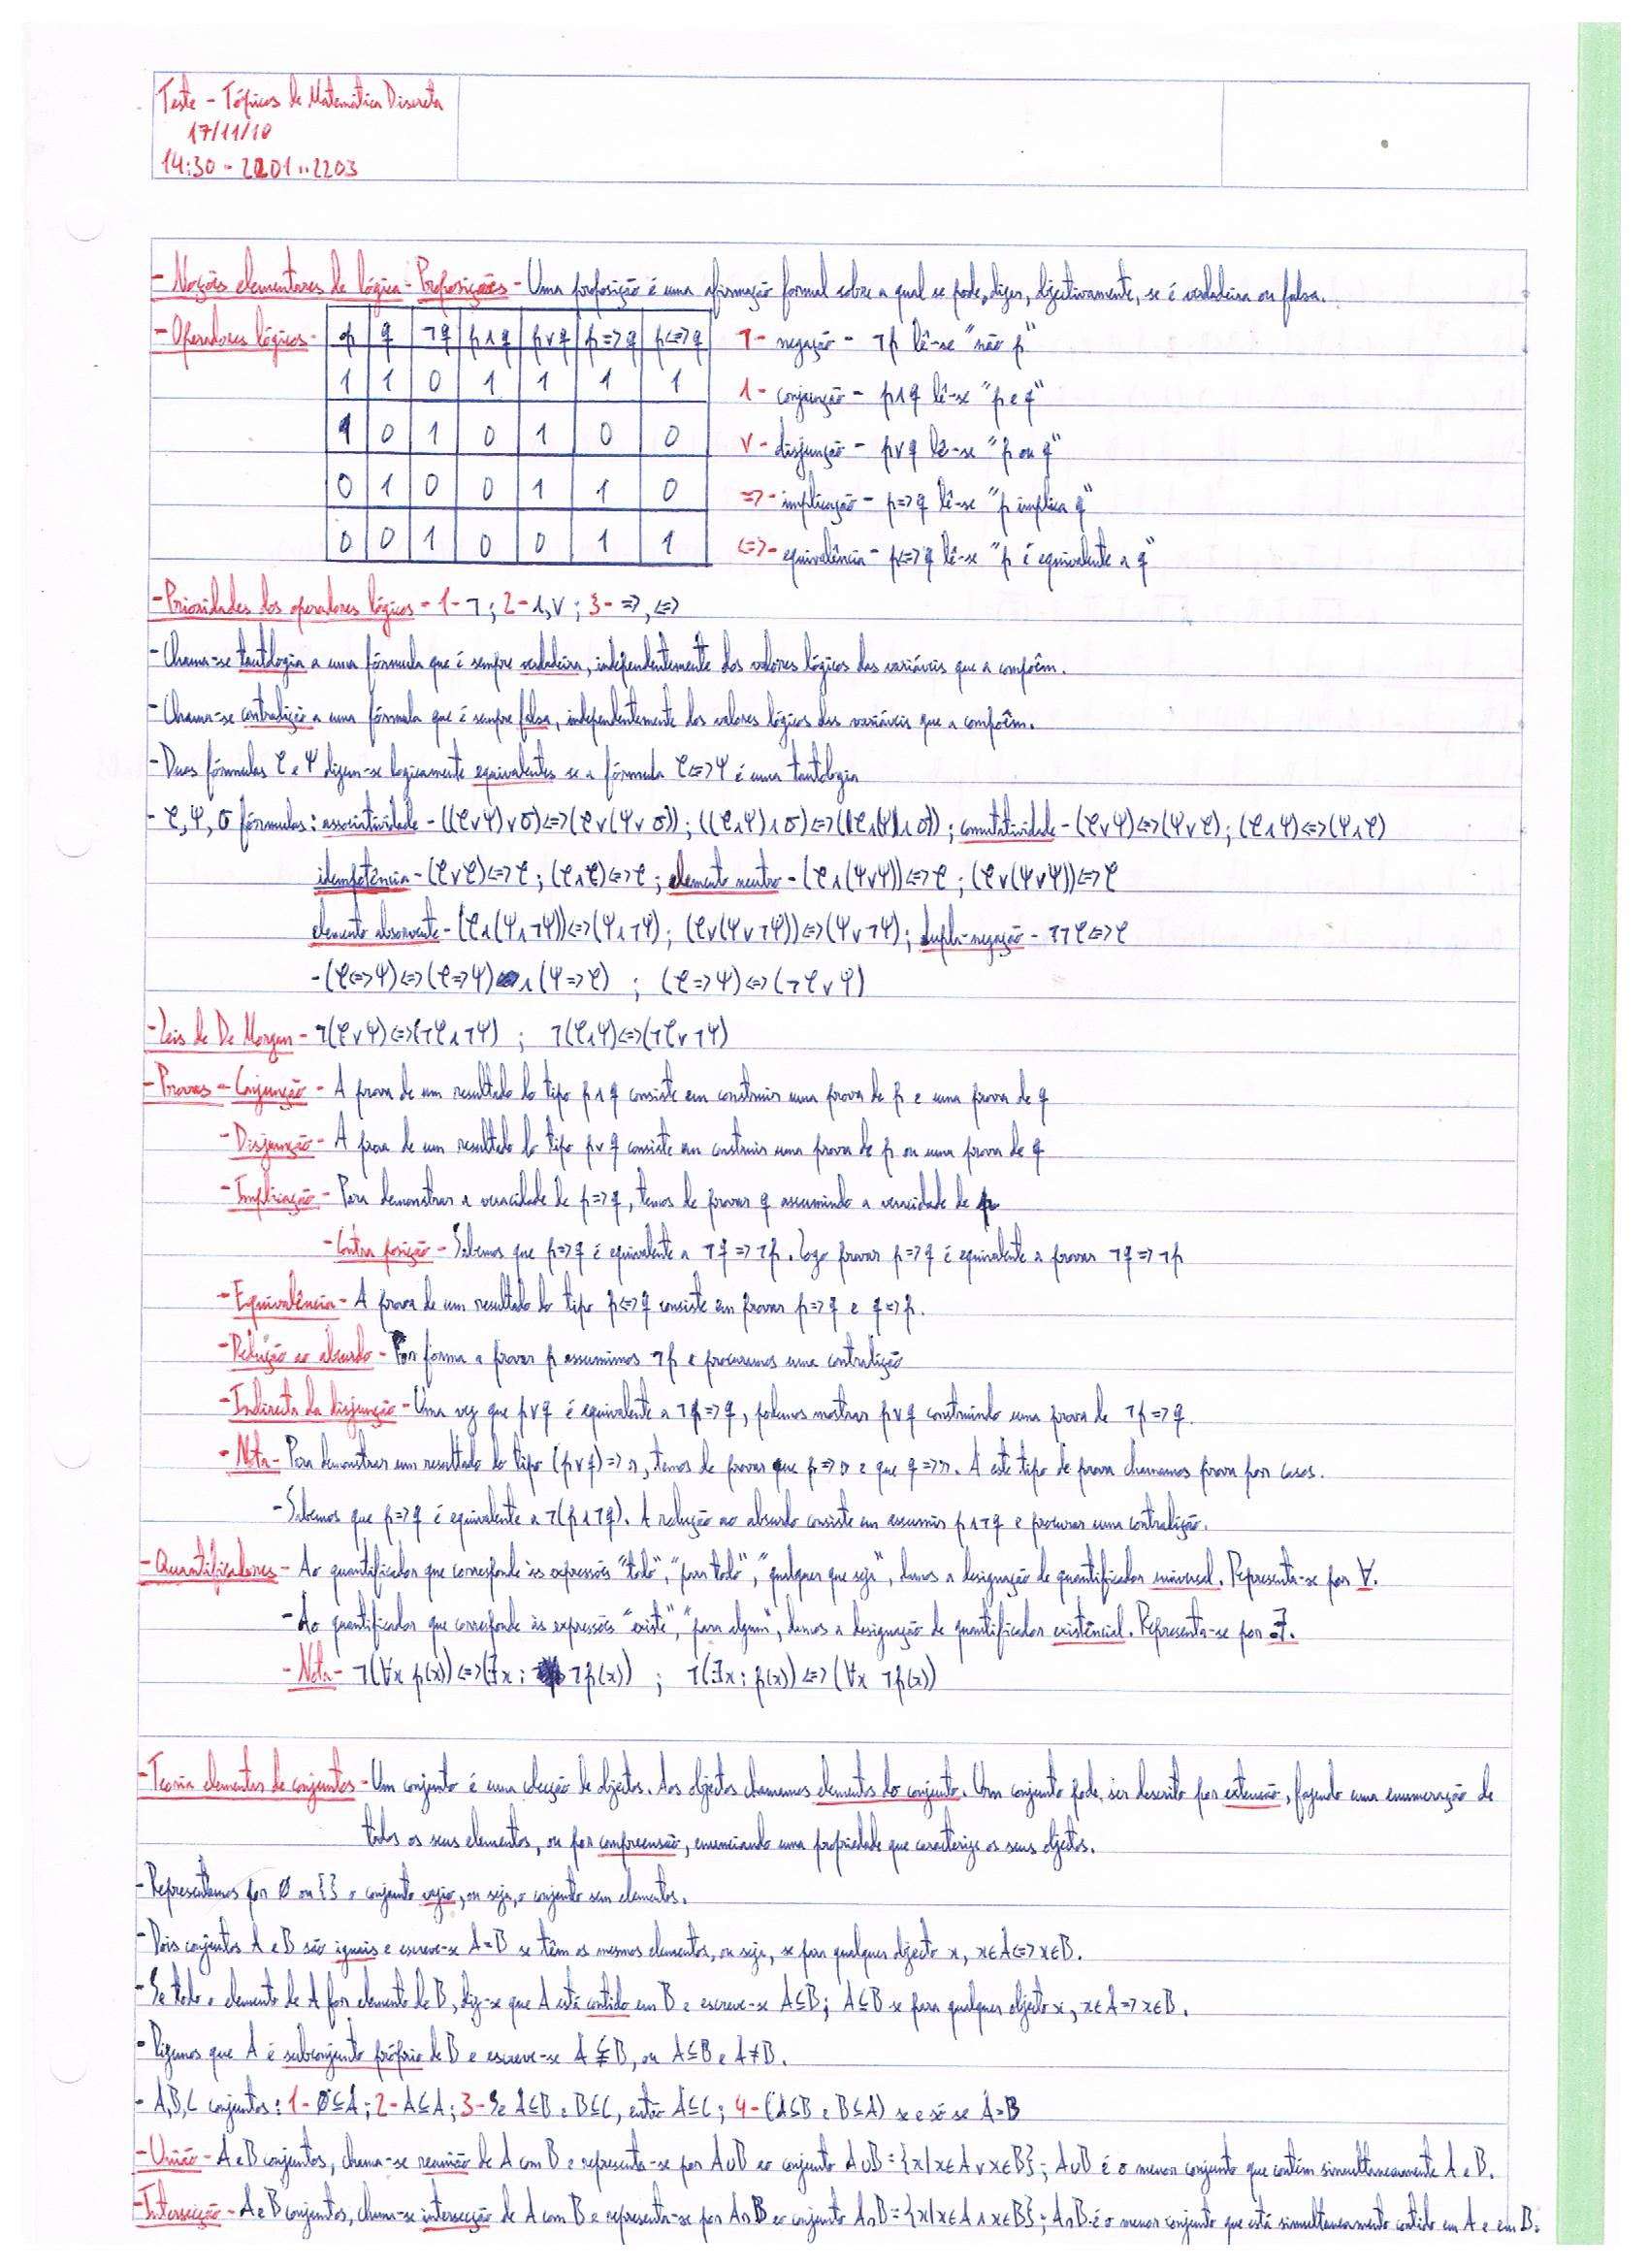 Teste - Tópicos de Matemática Discreta
17/11/10
14:30 - 2201..2203
- Noções elementares de lógica - Proposições - Uma proposição é uma afirmação formal sobre a qual se pode, dizer, objectivamente, se é verdadeira ou falsa.
- Operadores lógicos -
p q ¬q p∧q p∨q p=>q p<=>q
1 1 0 1 1 1 1
1 0 1 0 1 0 0
0 1 0 0 1 1 0
0 0 1 0 0 1 1
¬ - negação - ¬p lê-se "não p"
∧ - conjunção - p∧q lê-se "p e q"
∨ - disjunção - p∨q lê-se "p ou q"
=> - implicação - p=>q lê-se "p implica q"
<=> - equivalência - p<=>q lê-se "p é equivalente a q"
- Prioridades dos operadores lógicos - 1- ¬; 2- ∧,∨; 3- =>, <=>
- Chama-se tautologia a uma fórmula que é sempre verdadeira, independentemente dos valores lógicos das variáveis que a compõem.
- Chama-se contradição a uma fórmula que é sempre falsa, independentemente dos valores lógicos das variáveis que a compõem.
- Duas fórmulas φ e ψ dizem-se logicamente equivalentes se a fórmula φ<=>ψ é uma tautologia
- φ, ψ, σ fórmulas: associatividade - ((φ∨ψ)∨σ)<=>(φ∨(ψ∨σ)); ((φ∧ψ)∧σ)<=>(φ∧(ψ∧σ)); comutatividade - (φ∨ψ)<=>(ψ∨φ); (φ∧ψ)<=>(ψ∧φ)
idempotência - (φ∨φ)<=>φ; (φ∧φ)<=>φ; elemento neutro - (φ∧(ψ∨ψ))<=>φ; (φ∨(ψ∨ψ))<=>φ
elemento absorvente - (φ∧(ψ∧¬ψ))<=>(ψ∧¬ψ); (φ∨(ψ∨¬ψ))<=>(ψ∨¬ψ); dupla-negação - ¬¬φ<=>φ
- (φ<=>ψ)<=>(φ=>ψ)∧(ψ=>φ) ; (φ=>ψ)<=>(¬φ∨ψ)
- Leis de De Morgan - ¬(φ∨ψ)<=>(¬φ∧¬ψ) ; ¬(φ∧ψ)<=>(¬φ∨¬ψ)
- Provas - Conjunção - A prova de um resultado do tipo p∧q consiste em construir uma prova de p e uma prova de q
- Disjunção - A prova de um resultado do tipo p∨q consiste em construir uma prova de p ou uma prova de q
- Implicação - Para demonstrar a veracidade de p=>q, temos de provar q assumindo a veracidade de p
- Contra posição - Sabemos que p=>q é equivalente a ¬q=>¬p. Logo provar p=>q é equivalente a provar ¬q=>¬p
- Equivalência - A prova de um resultado do tipo p<=>q consiste em provar p=>q e q=>p.
- Redução ao absurdo - Por forma a provar p assumimos ¬p e procuramos uma contradição
- Indirecta da disjunção - Uma vez que p∨q é equivalente a ¬p=>q, podemos mostrar p∨q construindo uma prova de ¬p=>q.
- Nota - Para demonstrar um resultado do tipo (p∨q)=>r, temos de provar que p=>r e que q=>r. A este tipo de prova chamamos prova por casos.
- Sabemos que p=>q é equivalente a ¬(p∧¬q). A redução ao absurdo consiste em assumir p∧¬q e procurar uma contradição.
- Quantificadores - Ao quantificador que corresponde às expressões "todo", "para todo", "qualquer que seja", damos a designação de quantificador universal. Representa-se por ∀.
- Ao quantificador que corresponde às expressões "existe", "para algum", damos a designação de quantificador existêncial. Representa-se por ∃.
- Nota - ¬(∀x p(x))<=>(∃x: ¬p(x)) ; ¬(∃x: p(x))<=>(∀x ¬p(x))
- Teoria elementar de conjuntos - Um conjunto é uma colecção de objectos. Aos objectos chamamos elementos do conjunto. Um conjunto pode, ser descrito por extensão, fazendo uma enumeração de
todos os seus elementos, ou por compreensão, enunciando uma propriedade que caracterize os seus objectos.
- Representamos por ∅ ou {} o conjunto vazio, ou seja, o conjunto sem elementos.
- Dois conjuntos A e B são iguais e escreve-se A=B se têm os mesmos elementos, ou seja, se para qualquer objecto x, x∈A<=>x∈B.
- Se todo o elemento de A for elemento de B, diz-se que A está contido em B e escreve-se A⊆B; A⊆B se para qualquer objecto x, x∈A=>x∈B.
- Dizemos que A é subconjunto próprio de B e escreve-se A⊊B, ou A⊆B e A≠B.
- A,B,C conjuntos: 1- ∅⊆A; 2- A⊆A; 3- Se A⊆B e B⊆C, então A⊆C; 4- (A⊆B e B⊆A) se e só se A=B
- União - A e B conjuntos, chama-se reunião de A com B e representa-se por A∪B ao conjunto A∪B={x|x∈A∨x∈B}; A∪B é o menor conjunto que contém simultaneamente A e B.
- Intersecção - A e B conjuntos, chama-se intersecção de A com B e representa-se por A∩B ao conjunto A∩B={x|x∈A∧x∈B}; A∩B é o menor conjunto que está simultaneamente contido em A e em B.